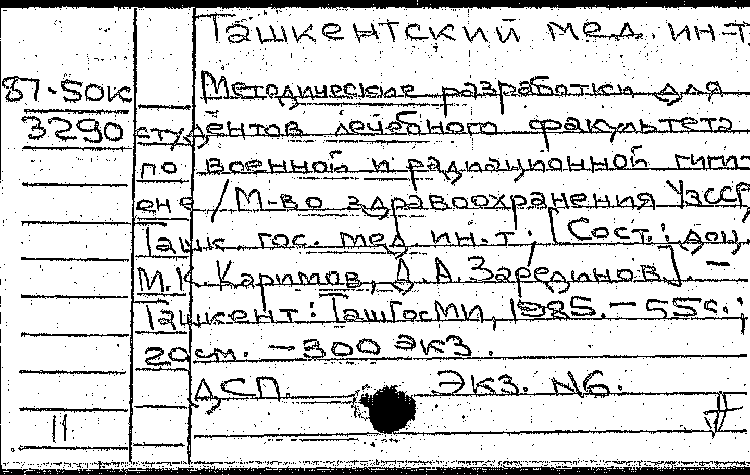 Ташкентский мед. ин-т
87-50к
Методические разработки для
3290
студентов лечебного факультета
по военной и радиационной гиги-
ене / М-во здравоохранения УзССР,
Ташк. гос. мед ин-т. [Сост.: доц.
М.К. Каримов, Д.А. Зарединов]. –
Ташкент: ТашГосМИ, 1985. – 55с.;
20см. – 300 экз.
ДСП. Экз. N6.
11